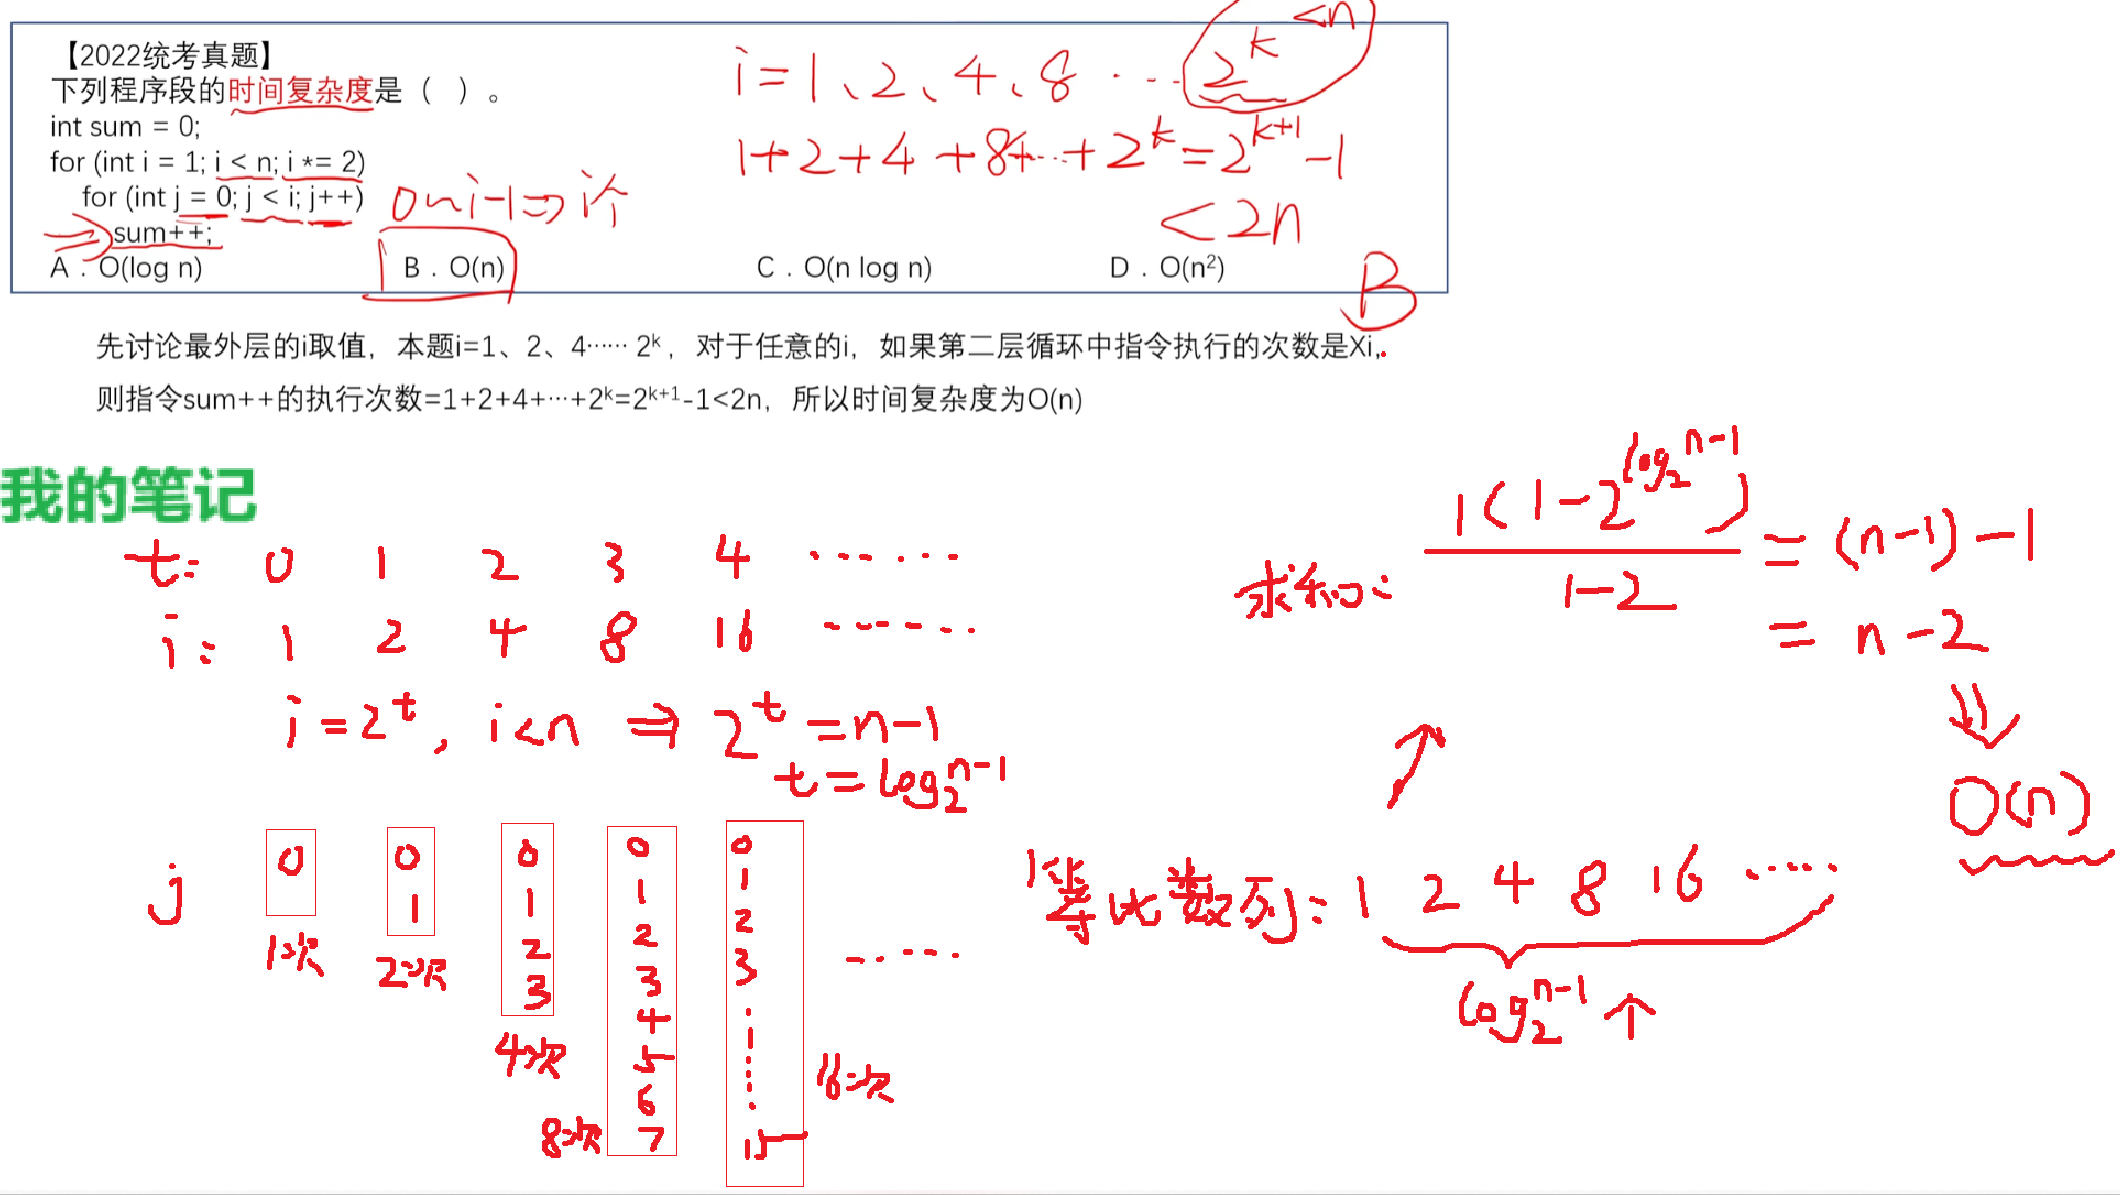 【2022统考真题】
下列程序段的时间复杂度是（ ）。
int sum = 0;
for (int i = 1; i < n; i *= 2)
for (int j = 0; j < i; j++)
sum++;
A．O(log n) B．O(n) C．O(n log n) D．O(n²)
i=1、2、4、8 ... 2^k <n
1+2+4+8+...+2^k=2^(k+1)-1
<2n
0~i-1⇒i个
B
先讨论最外层的i取值，本题i=1、2、4…… 2ᵏ，对于任意的i，如果第二层循环中指令执行的次数是Xi，
则指令sum++的执行次数=1+2+4+…+2ᵏ=2ᵏ⁺¹-1<2n，所以时间复杂度为O(n)
我的笔记
t= 0 1 2 3 4 ......
i: 1 2 4 8 16 ......
i=2^t, i<n ⇒ 2^t=n-1
t=log₂^(n-1)
j 0 0 0 0 0
1 1 1 1
2 2 2
3 3 3 ......
4
5
6
7 15
1次 2次 4次 8次 16次
等比数列: 1 2 4 8 16 ......
log₂^(n-1) 个
求和: 1(1-2^(log₂^(n-1)))/(1-2) = (n-1)-1
= n-2
⇓
O(n)